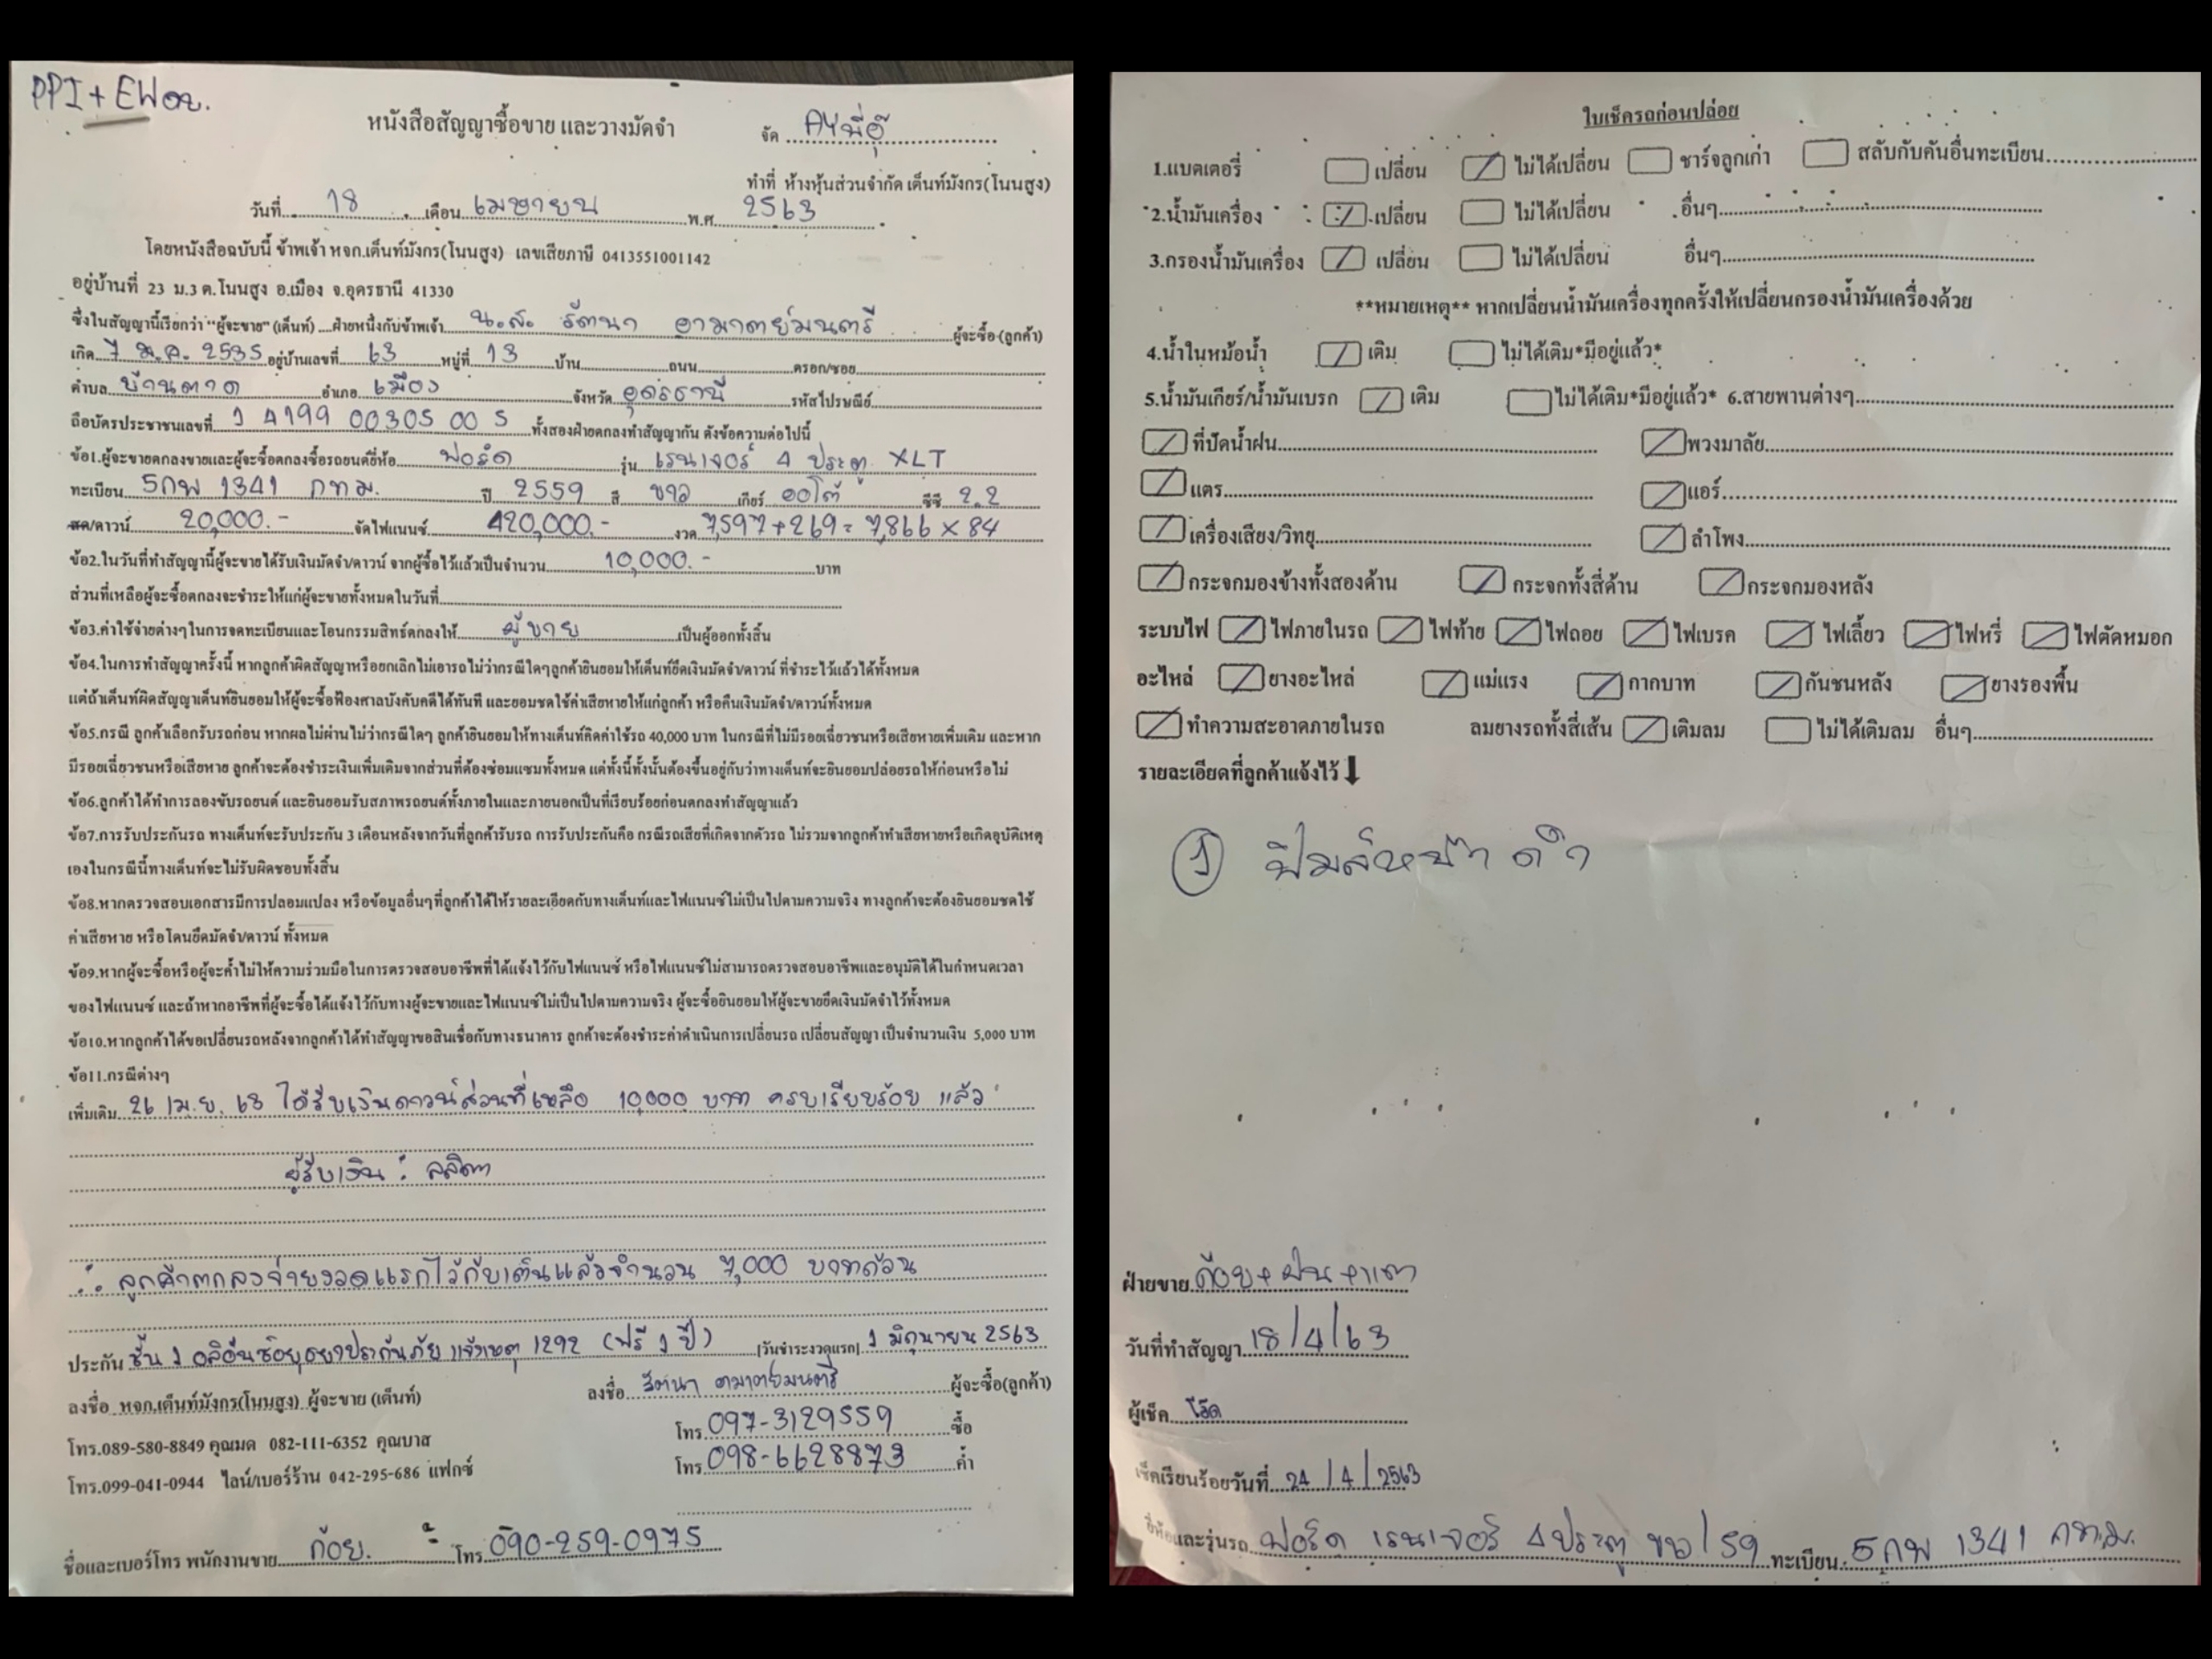 PPI + EW
หนังสือสัญญาซื้อขาย และวางมัดจำ จัด AY
ทำที่ ห้างหุ้นส่วนจำกัด เต็นท์มังกร(โนนสูง)
วันที่ 18 เดือน เมษายน พ.ศ. 2563
โดยหนังสือฉบับนี้ ข้าพเจ้า หจก.เต็นท์มังกร(โนนสูง) เลขเสียภาษี 0413551001142
อยู่บ้านที่ 23 ม.3 ต.โนนสูง อ.เมือง จ.อุดรธานี 41330
ซึ่งในสัญญานี้เรียกว่า "ผู้จะขาย" (เต็นท์) ....ฝ่ายหนึ่งกับข้าพเจ้า น.ส. รัตนา อามาตย์มนตรี ผู้จะซื้อ(ลูกค้า)
เกิด 7 ม.ค. 2535 อยู่บ้านเลขที่ 63 หมู่ที่ 13 บ้าน ถนน ตรอก/ซอย
ตำบล บ้านตาด อำเภอ เมือง จังหวัด อุดรธานี รหัสไปรษณีย์
ถือบัตรประชาชนเลขที่ 1 4199 00305 00 5 ทั้งสองฝ่ายตกลงทำสัญญากัน ดังข้อความต่อไปนี้
ข้อ1.ผู้จะขายตกลงขายและผู้จะซื้อตกลงซื้อรถยนต์ยี่ห้อ ฟอร์ด รุ่น เรนเจอร์ 4 ประตู XLT
ทะเบียน 5กพ 1341 กทม. ปี 2559 สี ขาว เกียร์ ออโต้ ซีซี 2.2
สด/ดาวน์ 20,000.- จัดไฟแนนซ์ 420,000.- งวด 7,597+269= 7,866 × 84
ข้อ2.ในวันที่ทำสัญญานี้ผู้จะขายได้รับเงินมัดจำ/ดาวน์ จากผู้ซื้อไว้แล้วเป็นจำนวน 10,000.- บาท
ส่วนที่เหลือผู้จะซื้อตกลงจะชำระให้แก่ผู้จะขายทั้งหมดในวันที่
ข้อ3.ค่าใช้จ่ายต่างๆในการจดทะเบียนและโอนกรรมสิทธ์ตกลงให้ ผู้ขาย เป็นผู้ออกทั้งสิ้น
ข้อ4.ในการทำสัญญาครั้งนี้ หากลูกค้าผิดสัญญาหรือยกเลิกไม่เอารถ ไม่ว่ากรณีใดๆลูกค้ายินยอมให้เต็นท์ยึดเงินมัดจำ/ดาวน์ ที่ชำระไว้แล้วได้ทั้งหมด
แต่ถ้าเต็นท์ผิดสัญญาเต็นท์ยินยอมให้ผู้จะซื้อฟ้องศาลบังคับคดีได้ทันที และยอมชดใช้ค่าเสียหายให้แก่ลูกค้า หรือคืนเงินมัดจำ/ดาวน์ทั้งหมด
ข้อ5.กรณี ลูกค้าเลือกรับรถก่อน หากผลไม่ผ่านไม่ว่ากรณีใดๆ ลูกค้ายินยอมให้ทางเต็นท์คิดค่าใช้รถ 40,000 บาท ในกรณีที่ไม่มีรอยเฉี่ยวชนหรือเสียหายเพิ่มเติม และหาก
มีรอยเฉี่ยวชนหรือเสียหาย ลูกค้าจะต้องชำระเงินเพิ่มเติมจากส่วนที่ต้องซ่อมแซมทั้งหมด แต่ทั้งนี้ทั้งนั้นต้องขึ้นอยู่กับว่าทางเต็นท์จะยินยอมปล่อยรถให้ก่อนหรือไม่
ข้อ6.ลูกค้าได้ทำการลองขับรถยนต์ และยินยอมรับสภาพรถยนต์ทั้งภายในและภายนอกเป็นที่เรียบร้อยก่อนตกลงทำสัญญาแล้ว
ข้อ7.การรับประกันรถ ทางเต็นท์จะรับประกัน 3 เดือนหลังจากวันที่ลูกค้ารับรถ การรับประกันคือ กรณีรถเสียที่เกิดจากตัวรถ ไม่รวมจากลูกค้าทำเสียหายหรือเกิดอุบัติเหตุ
เองในกรณีนี้ทางเต็นท์จะไม่รับผิดชอบทั้งสิ้น
ข้อ8.หากตรวจสอบเอกสารมีการปลอมแปลง หรือข้อมูลอื่นๆที่ลูกค้าได้ให้รายละเอียดกับทางเต็นท์และไฟแนนซ์ไม่เป็นไปตามความจริง ทางลูกค้าจะต้องยินยอมชดใช้
ค่าเสียหาย หรือโดนยึดมัดจำ/ดาวน์ ทั้งหมด
ข้อ9.หากผู้จะซื้อหรือผู้จะค้ำไม่ให้ความร่วมมือในการตรวจสอบอาชีพที่ได้แจ้งไว้กับไฟแนนซ์ หรือไฟแนนซ์ไม่สามารถตรวจสอบอาชีพและอนุมัติได้ในกำหนดเวลา
ของไฟแนนซ์ และถ้าหากอาชีพที่ผู้จะซื้อได้แจ้งไว้กับทางผู้จะขายและไฟแนนซ์ไม่เป็นไปตามความจริง ผู้จะซื้อยินยอมให้ผู้จะขายยึดเงินมัดจำไว้ทั้งหมด
ข้อ10.หากลูกค้าได้ขอเปลี่ยนรถหลังจากลูกค้าได้ทำสัญญาขอสินเชื่อกับทางธนาคาร ลูกค้าจะต้องชำระค่าดำเนินการเปลี่ยนรถ เปลี่ยนสัญญา เป็นจำนวนเงิน 5,000 บาท
ข้อ11.กรณีต่างๆ
เพิ่มเติม 26 เม.ย. 63 ได้รับเงินดาวน์ส่วนที่เหลือ 10,000 บาท ครบเรียบร้อย แล้ว
ผู้รับเงิน : ลลิตา
∴ ลูกค้าตกลงจ่ายงวดแรกไว้กับเต็นแล้วจำนวน 7,000 บาทถ้วน
ประกัน ชั้น 1 อลิอันซ์อยุธยาประกันภัย แจ้งเหตุ 1292 (ฟรี 1 ปี) [วันชำระงวดแรก] 1 มิถุนายน 2563
ลงชื่อ หจก.เต็นท์มังกร(โนนสูง) ผู้จะขาย (เต็นท์) ลงชื่อ รัตนา อามาตย์มนตรี ผู้จะซื้อ(ลูกค้า)
โทร.089-580-8849 คุณมด 082-111-6352 คุณบาส โทร 097-3129559 ซื้อ
โทร.099-041-0944 ไลน์/เบอร์ร้าน 042-295-686 แฟกซ์ โทร 098-6628873 ค้ำ
ชื่อและเบอร์โทร พนักงานขาย ก้อย. โทร 090-259-0975
ใบเช็ครถก่อนปล่อย
1.แบตเตอรี่ เปลี่ยน ไม่ได้เปลี่ยน ชาร์จลูกเก่า สลับกับคันอื่นทะเบียน
2.น้ำมันเครื่อง เปลี่ยน ไม่ได้เปลี่ยน อื่นๆ
3.กรองน้ำมันเครื่อง เปลี่ยน ไม่ได้เปลี่ยน อื่นๆ
**หมายเหตุ** หากเปลี่ยนน้ำมันเครื่องทุกครั้งให้เปลี่ยนกรองน้ำมันเครื่องด้วย
4.น้ำในหม้อน้ำ เติม ไม่ได้เติม*มีอยู่แล้ว*
5.น้ำมันเกียร์/น้ำมันเบรก เติม ไม่ได้เติม*มีอยู่แล้ว* 6.สายพานต่างๆ
ที่ปัดน้ำฝน พวงมาลัย
แตร แอร์
เครื่องเสียง/วิทยุ ลำโพง
กระจกมองข้างทั้งสองด้าน กระจกทั้งสี่ด้าน กระจกมองหลัง
ระบบไฟ ไฟภายในรถ ไฟท้าย ไฟถอย ไฟเบรค ไฟเลี้ยว ไฟหรี่ ไฟตัดหมอก
อะไหล่ ยางอะไหล่ แม่แรง กากบาท กันชนหลัง ยางรองพื้น
ทำความสะอาดภายในรถ ลมยางรถทั้งสี่เส้น เติมลม ไม่ได้เติมลม อื่นๆ
รายละเอียดที่ลูกค้าแจ้งไว้ ⬇
① ฟิมล์หน้า
ฝ่ายขาย ก้อย+ฝน
วันที่ทำสัญญา 18/4/63
ผู้เช็ค
เช็คเรียบร้อยวันที่ 24 / 4 / 2563
ยี่ห้อและรุ่นรถ ฟอร์ด เรนเจอร์ 4ประตู ขาว/59 ทะเบียน 5กพ 1341 กทม.